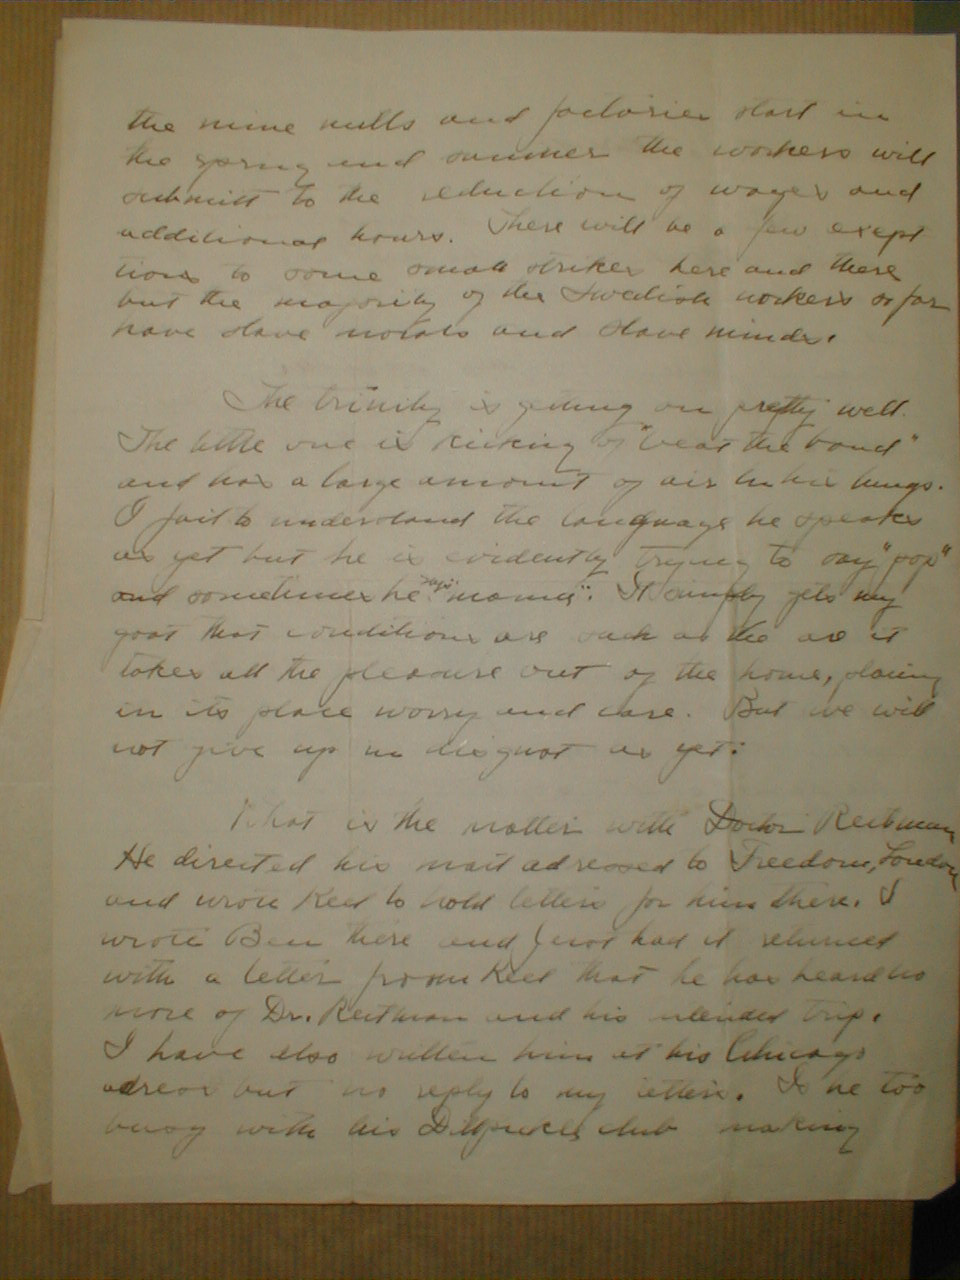 the mine mills and factories start in
the spring and summer the workers will
submitt to the reduction of wages and
additional hours. There will be a few exept
tions to some small strikes here and there
but the majority of the Swedish workers so far
have slave morals and slave minds.
The trinity is getting on pretty well.
The little one is kicking to "beat the band"
and has a large amount of air in his lungs.
I fail to understand the language he speaks
as yet but he is evidently trying to say "pop"
and sometimes he says "mama". It simply gets my
goat that conditions are such as the are it
takes all the pleasure out of the home, placing
in its place worry and care. But we will
not give up in disgust as yet.
What is the matter with Doctor Reitman
He directed his mail adressed to Freedom, London
and wrote Keel to hold letters for him there. I
wrote Ben there and just had it returned
with a letter from Keel that he has heard no
more of Dr. Reitman and his intended trip.
I have also written him at his Chicago
adress but no reply to my letters. Is he too
busy with his club making